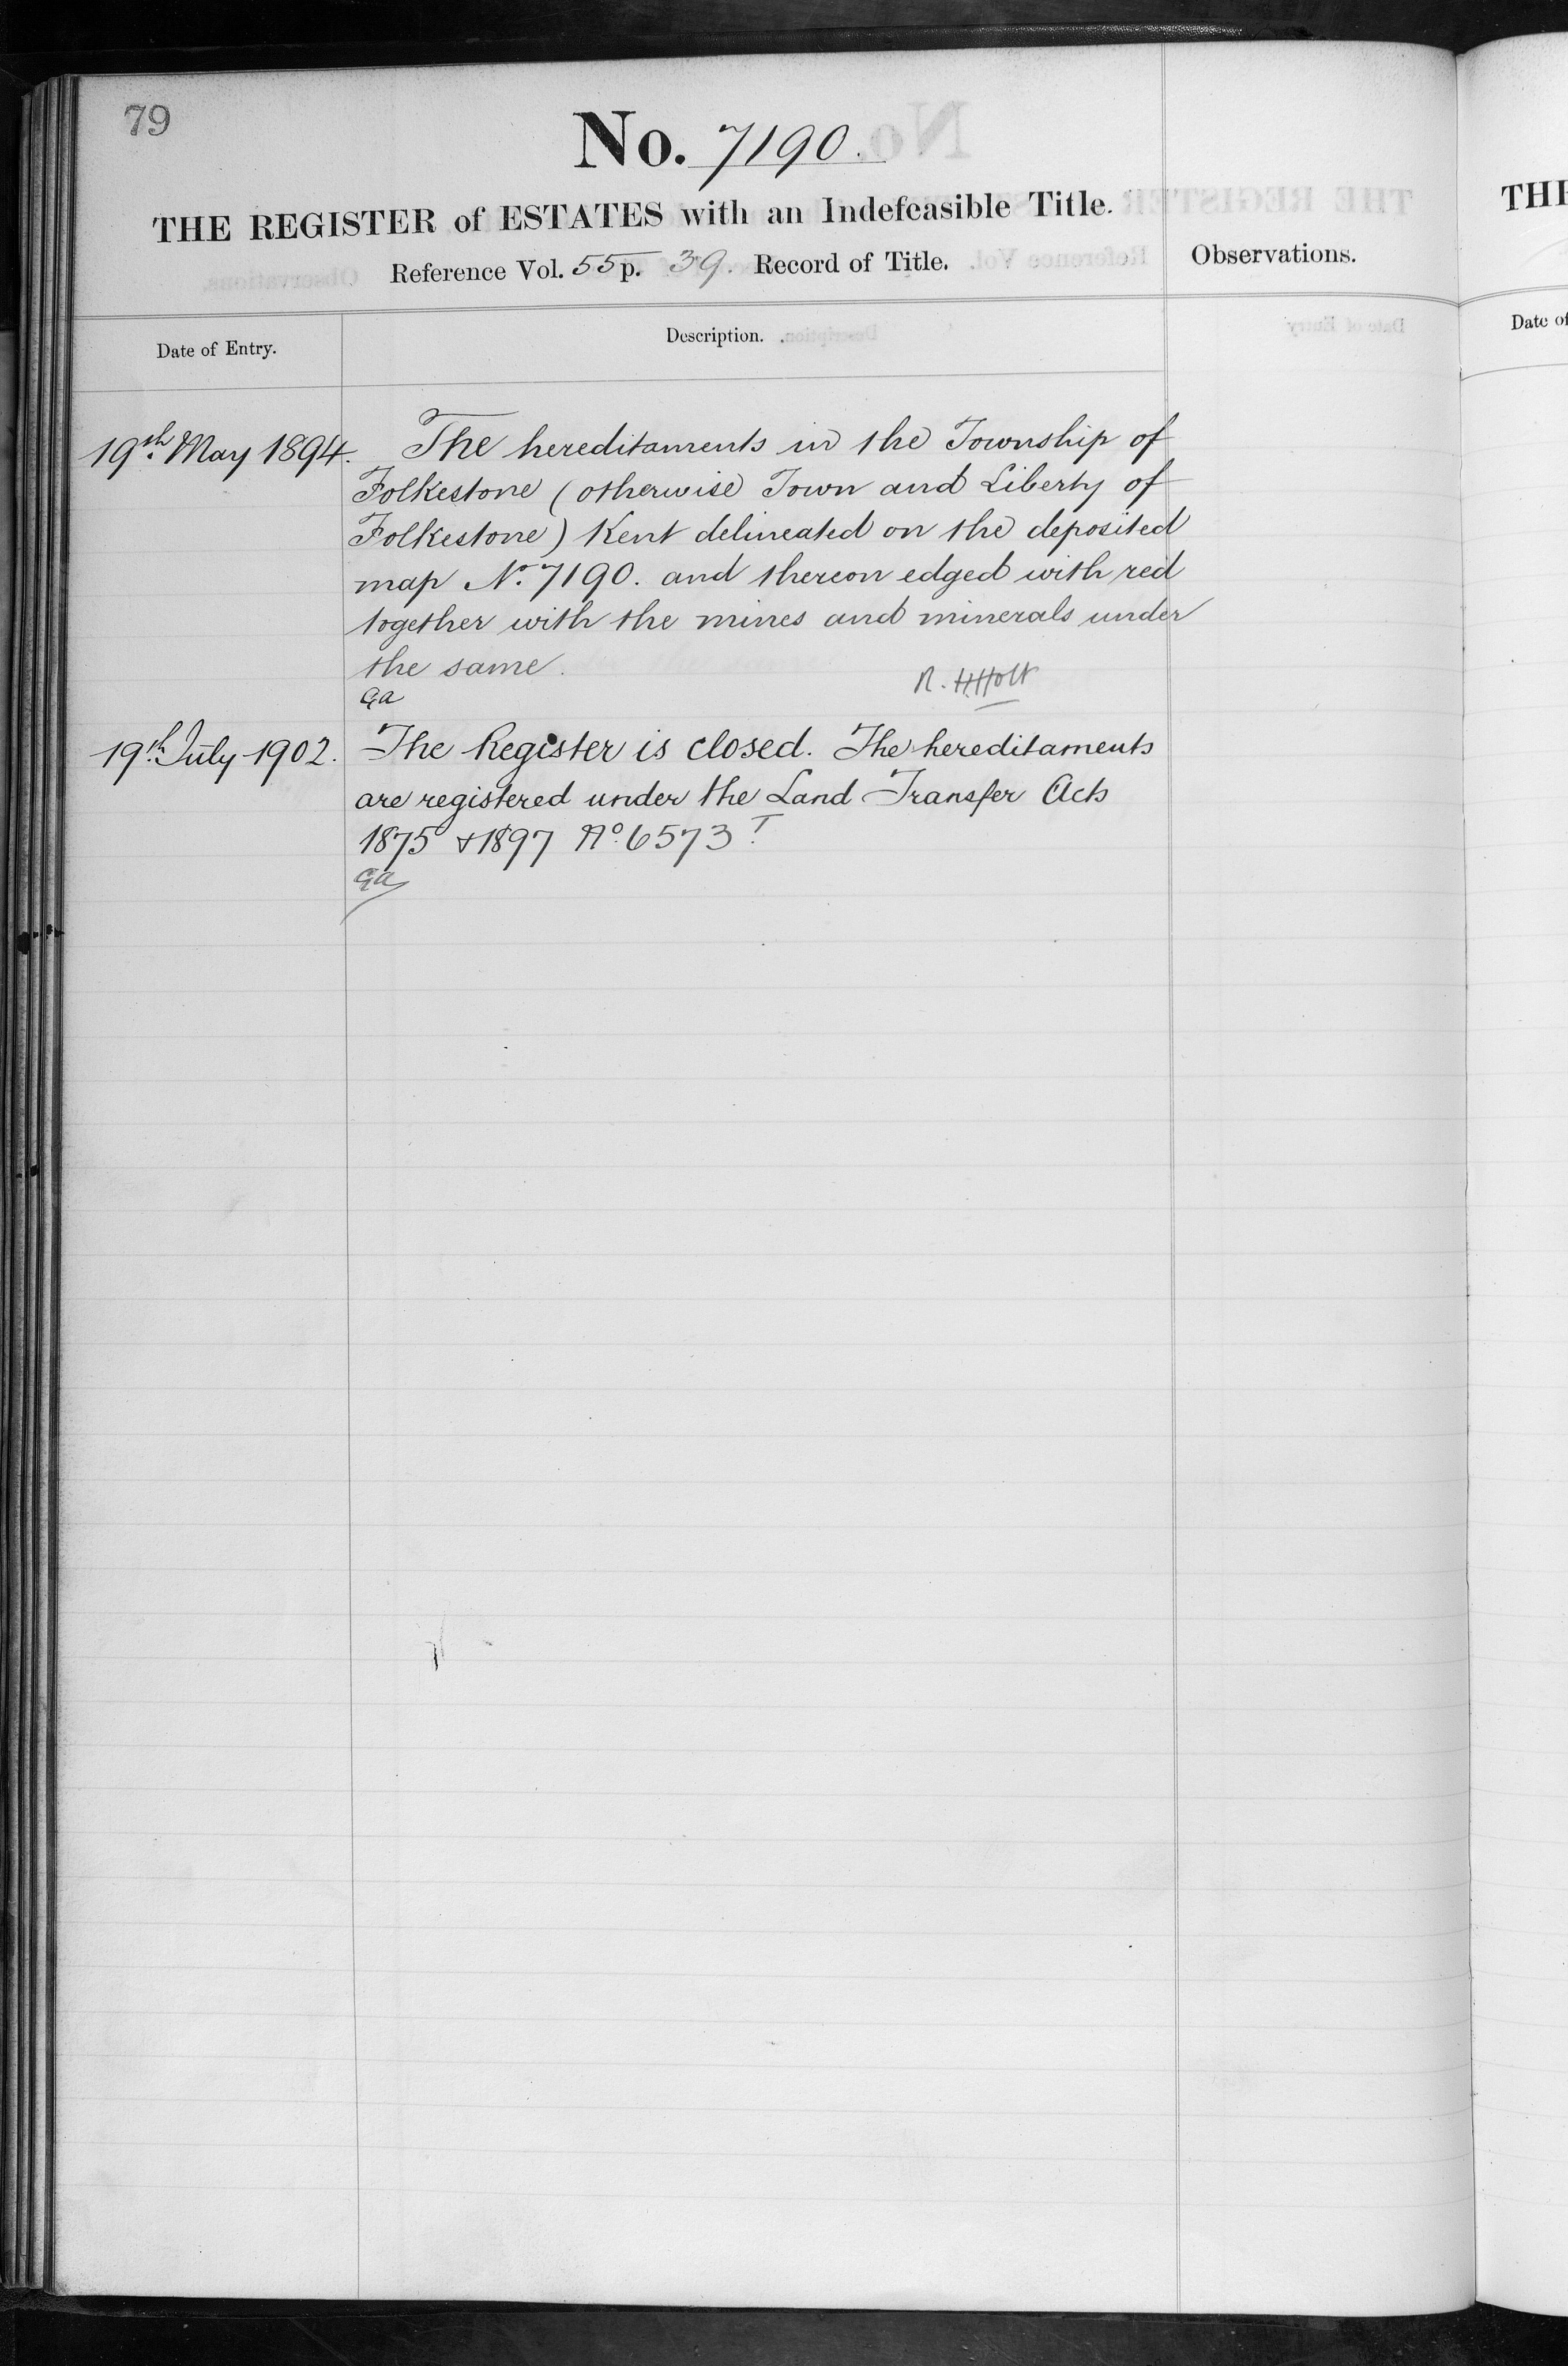 79
No. 7190.
THE REGISTER of ESTATES with an Indefeasible Title.
Reference Vol. 55 p. 39. Record of Title.
Observations.
Date of Entry.
Description.
19th May 1894.
The hereditaments in the Township of
Folkestone (otherwise Town and Liberty of
Folkestone) Kent delineated on the deposited
map No. 7190. and thereon edged with red
together with the mines and minerals under
the same.
R. H Holt
Ga
19th July 1902.
The Register is closed. The hereditaments
are registered under the Land Transfer Acts
1875 & 1897 No. 6573 T
Ga
THE
Date of